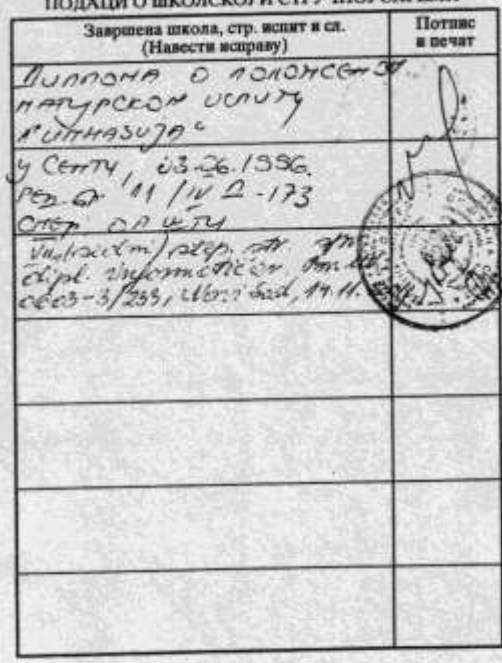 ПОДАЦИ О ШКОЛСКОЈ И СТРУЧНОЈ СПРЕМИ
Завршена школа, стр. испит и сл.
(Навести исправу)
Потпис
и печат
ДИПЛОМА О ПОЛОЖЕНОМ
МАТУРСКОМ ИСПИТУ
"ГИМНАЗИЈА"
У СЕНТИ, 03.06.1996.
РЕД. БР 11/IV Д-173
СМЕР ОПШТИ
VII step.
dipl. informatičar,
0603-3/233, Novi Sad, 14.11.